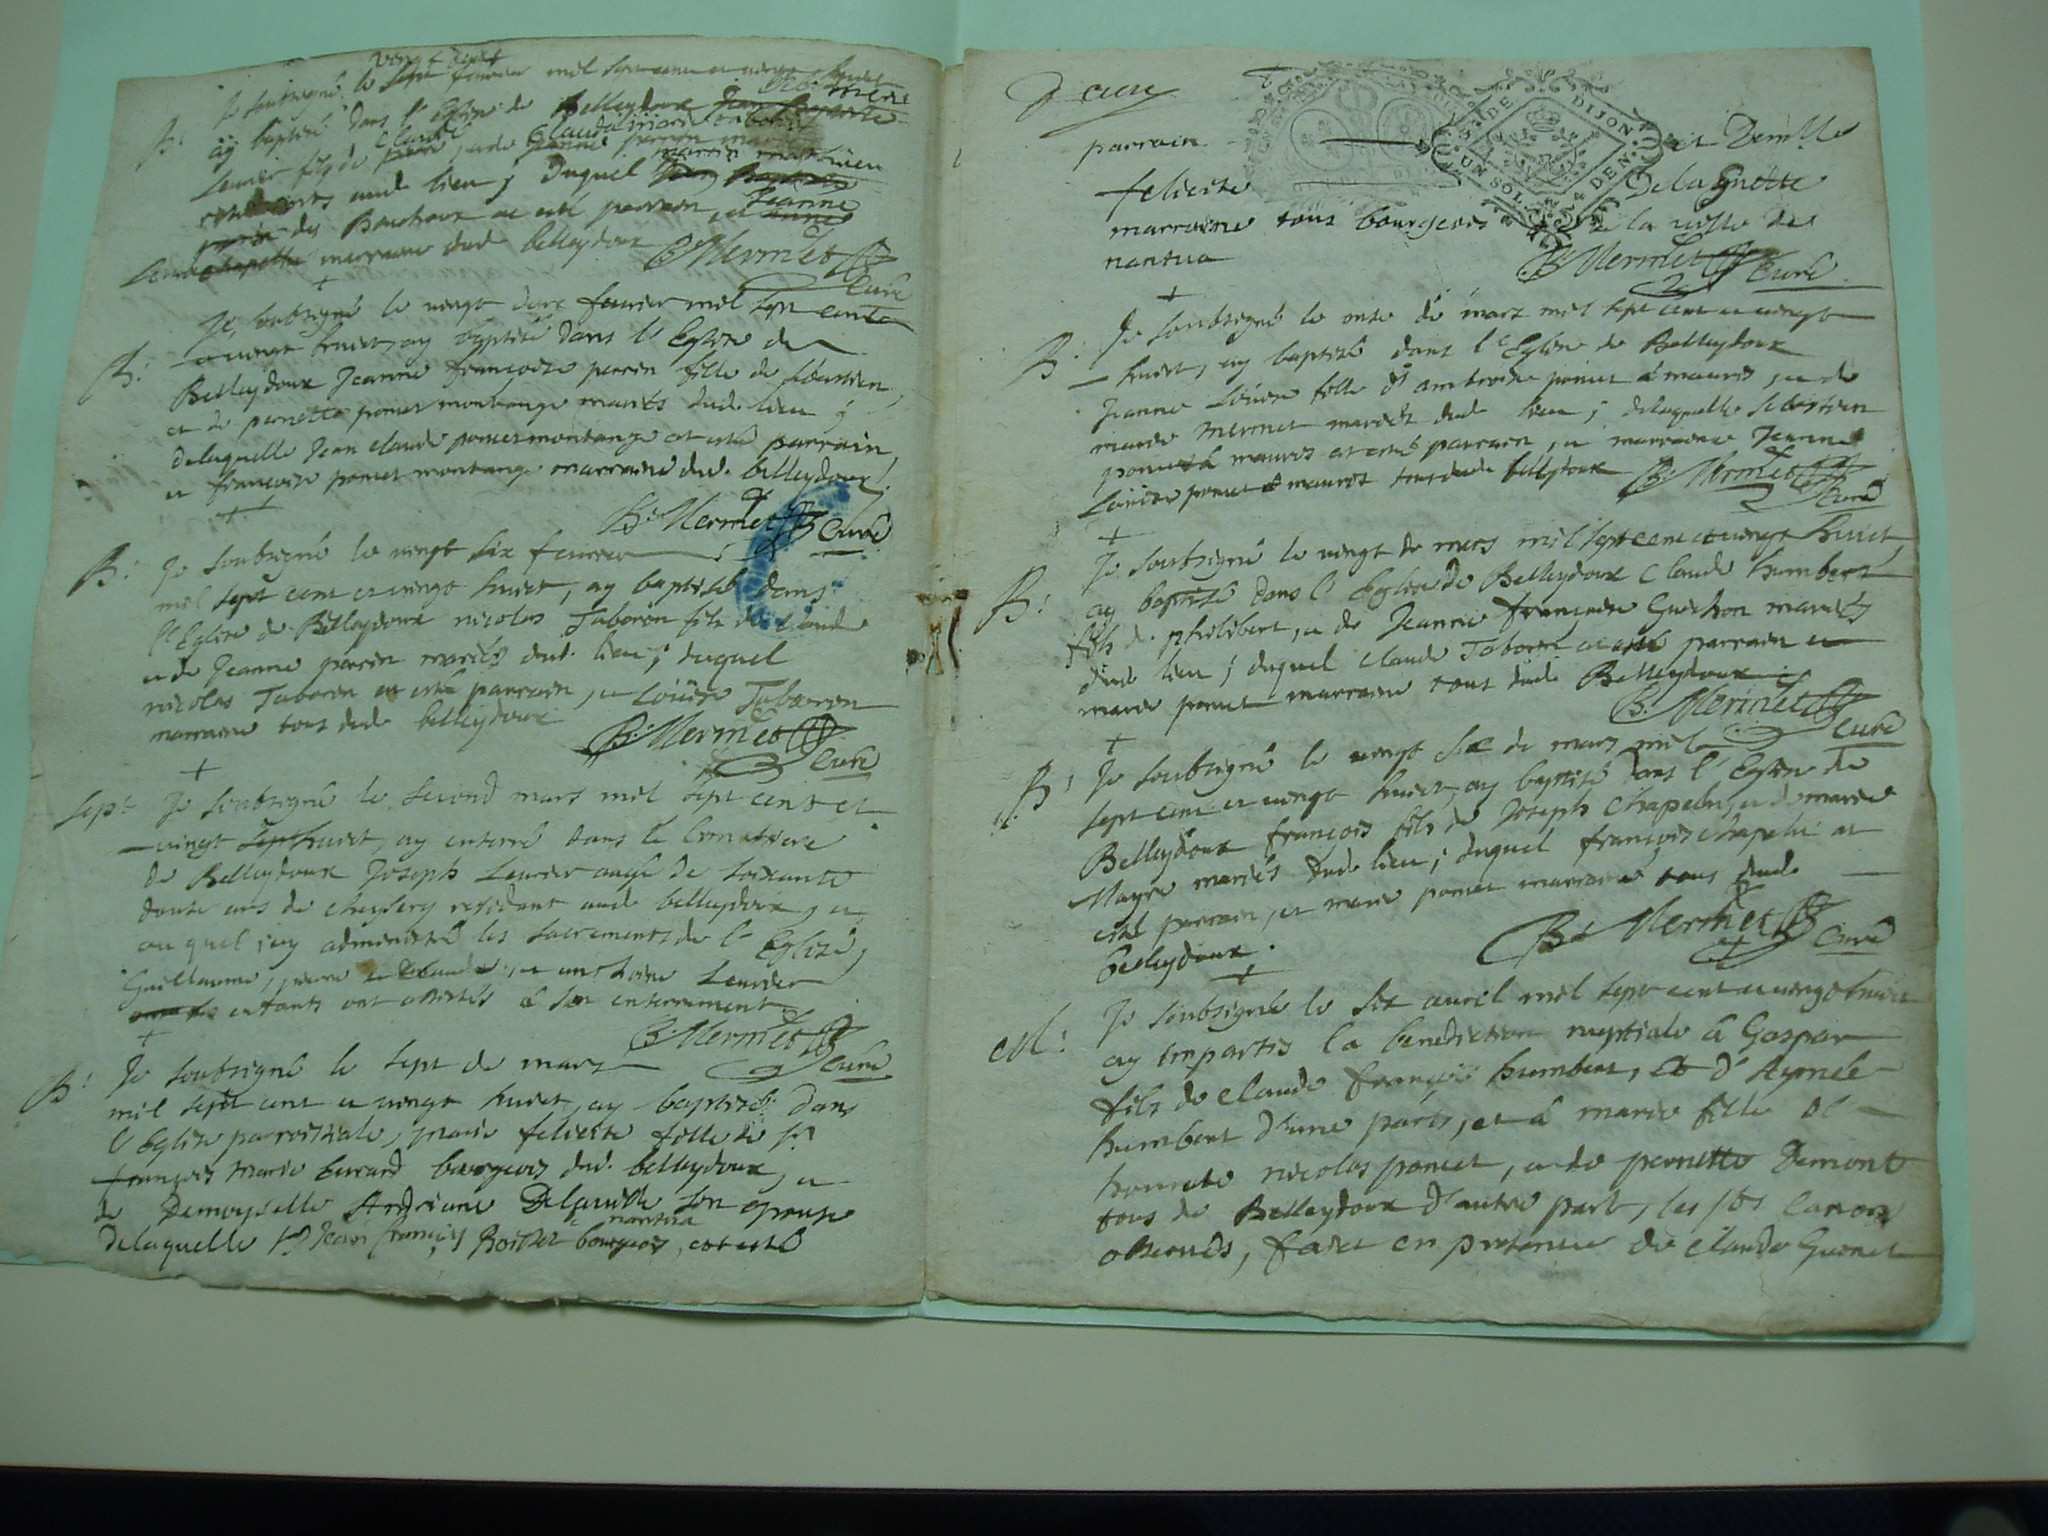 vingt deux
Je soubsigné le fevrier mil sept cent et vingt huict
B: ay baptisé dans l'Eglise de Belleydoux
fils de Claude
aud. lieu ; duquel
des Bouchoux at esté parrain, et Jeanne
marraine dud. belleydoux B. Mermet
Curé
+
Je soubsigné le vingt deux fevrier mil sept cents
B: et vingt huict, ay baptisé dans l'Eglise de
Belleydoux Jeanne françoise perrin fille de sébastien
et de pernette poncet montange mariés dud. lieu ;
delaquelle Jean claude poncet montange at esté parrain,
et françoise poncet montange marraine dud. belleydoux.
+ B. Mermet Curé
B: Je soubsigné le vingt six fevrier
mil sept cent et vingt huict, ay baptisé dans
l'Eglise de Belleydoux nicolas Tabouron fils de Claude
et de Jeanne perrin mariés dud. lieu ; duquel
nicolas Tabouron at esté parrain, et Loüise Tabouron
marraine tous dud. belleydoux
B. Mermet
+ Curé
Sep: Je soubsigné le second mars mil sept cent et
vingt sept huict, ay enterré dans le Cimettiere
de Belleydoux Joseph Levrier aagé de soixante
ans de chezery residant aud. belleydoux, et
auquel j'ay administré les sacrements de l'Eglise,
Guillaume, pierre et Claude, et anthoine Levrier
enfants ont assistés à son enterrement
+ B. Mermet
B: Je soubsigné le sept de mars Curé
mil sept cent et vingt huict, ay baptisé dans
l'Eglise parroissiale, marie felicité fille de sr.
françois marie Evrard bourgeois dud. belleydoux, et
de Demoyselle Andriane Delaguette son epouse
nantua
delaquelle sr. Jean françois bourgeois, at esté
parrain et Demlle
felicité Delaguette
marraine tous bourgeois de la ville de
nantua
B. Mermet
+ Curé
DE DIJON
UN SOL DEN
Je soubsigné le onze de mars mil sept cent et vingt
B: huict, ay baptisé dans l'Eglise de Belleydoux
Jeanne Loüise fille d'ambroise poncet à mauris, et de
marie mermet mariés dud. lieu ; delaquelle sebastien
poncet à mauris at esté parrain, et marraine Jeanne
Loüise poncet à mauris tous dud. belleydoux B. Mermet
+ Curé
Je soubsigné le vingt de mars mil sept cent et vingt huict
B: ay baptisé dans l'Eglise de Belleydoux Claude humbert
fils de philibert, et de Jeanne françoise Guichon mariés
dud. lieu ; duquel claude Tabouron at esté parrain et
marie poncet marraine tous dud. Belleydoux
B. Mermet
+ Curé
B: Je soubsigné le vingt six de mars mil
sept cent et vingt huict, ay baptisé dans l'Eglise de
Belleydoux françois fils de Joseph Chapelu, et de marie
Mayre mariés dud. lieu ; duquel françois chapelu at
esté parrain, et marie poncet marraine tous dud.
belleydoux.
B. Mermet
+ Curé
M: Je soubsigné le six avril mil sept cent et vingt huict
ay impartis la benediction nuptiale à Gaspar
fils de claude françois humbert, et d'Aymée
humbert d'une part, et à marie fille de
honneste nicolas poncet, et de pernette Demont
tous de Belleydoux d'autre part, les sts Canons
observés, faict en presence de claude Guenet